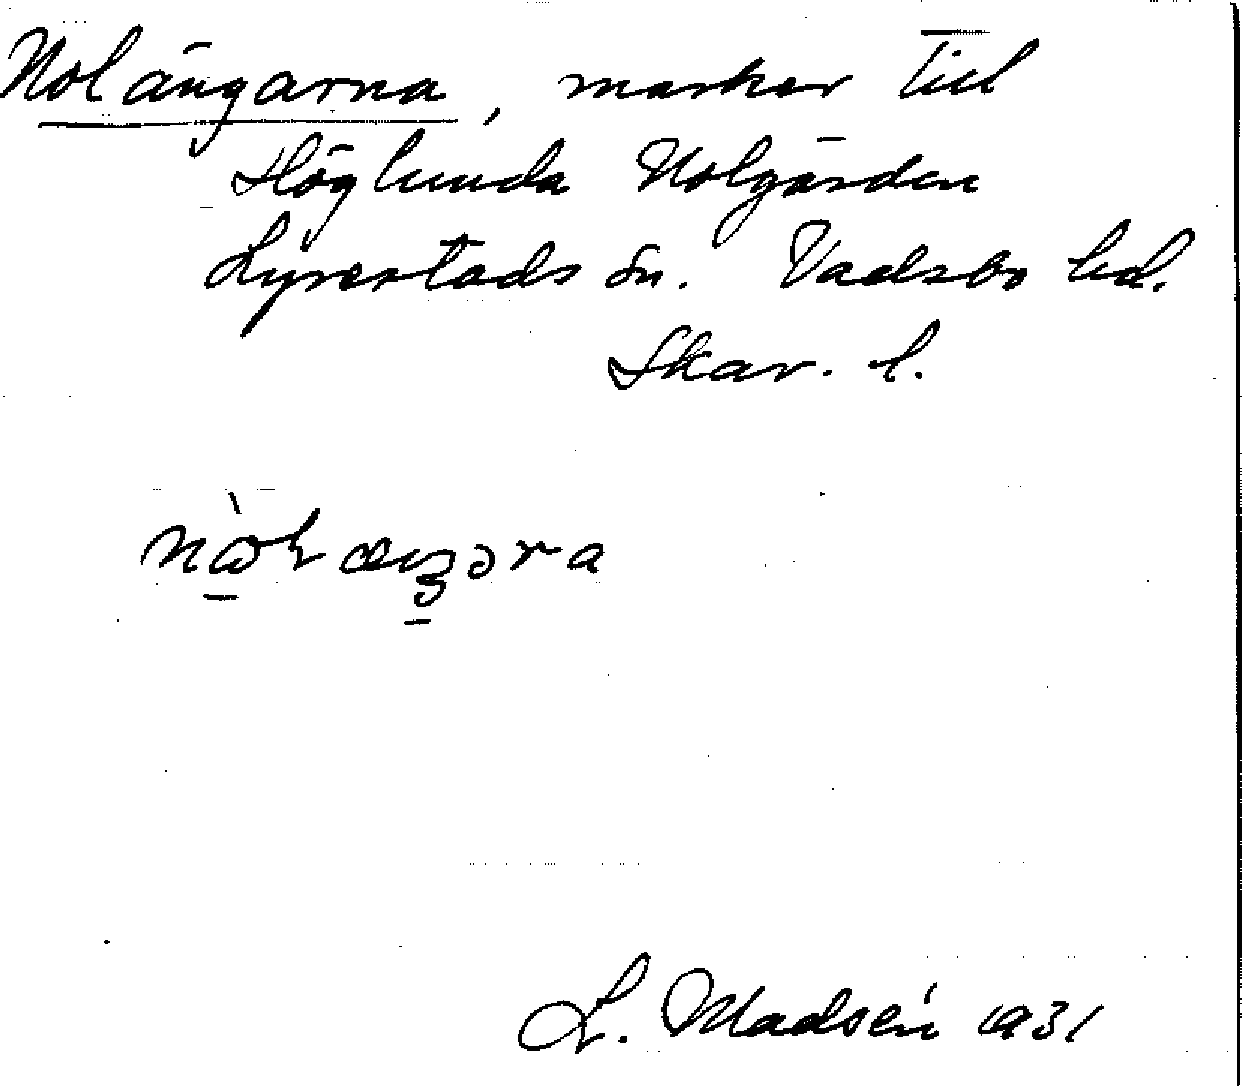 Nolängarna, marker till
Höglunda Nolgården
Lyrestads sn. Vadsbo hd.
Skar. l.
L. Madsén 1931